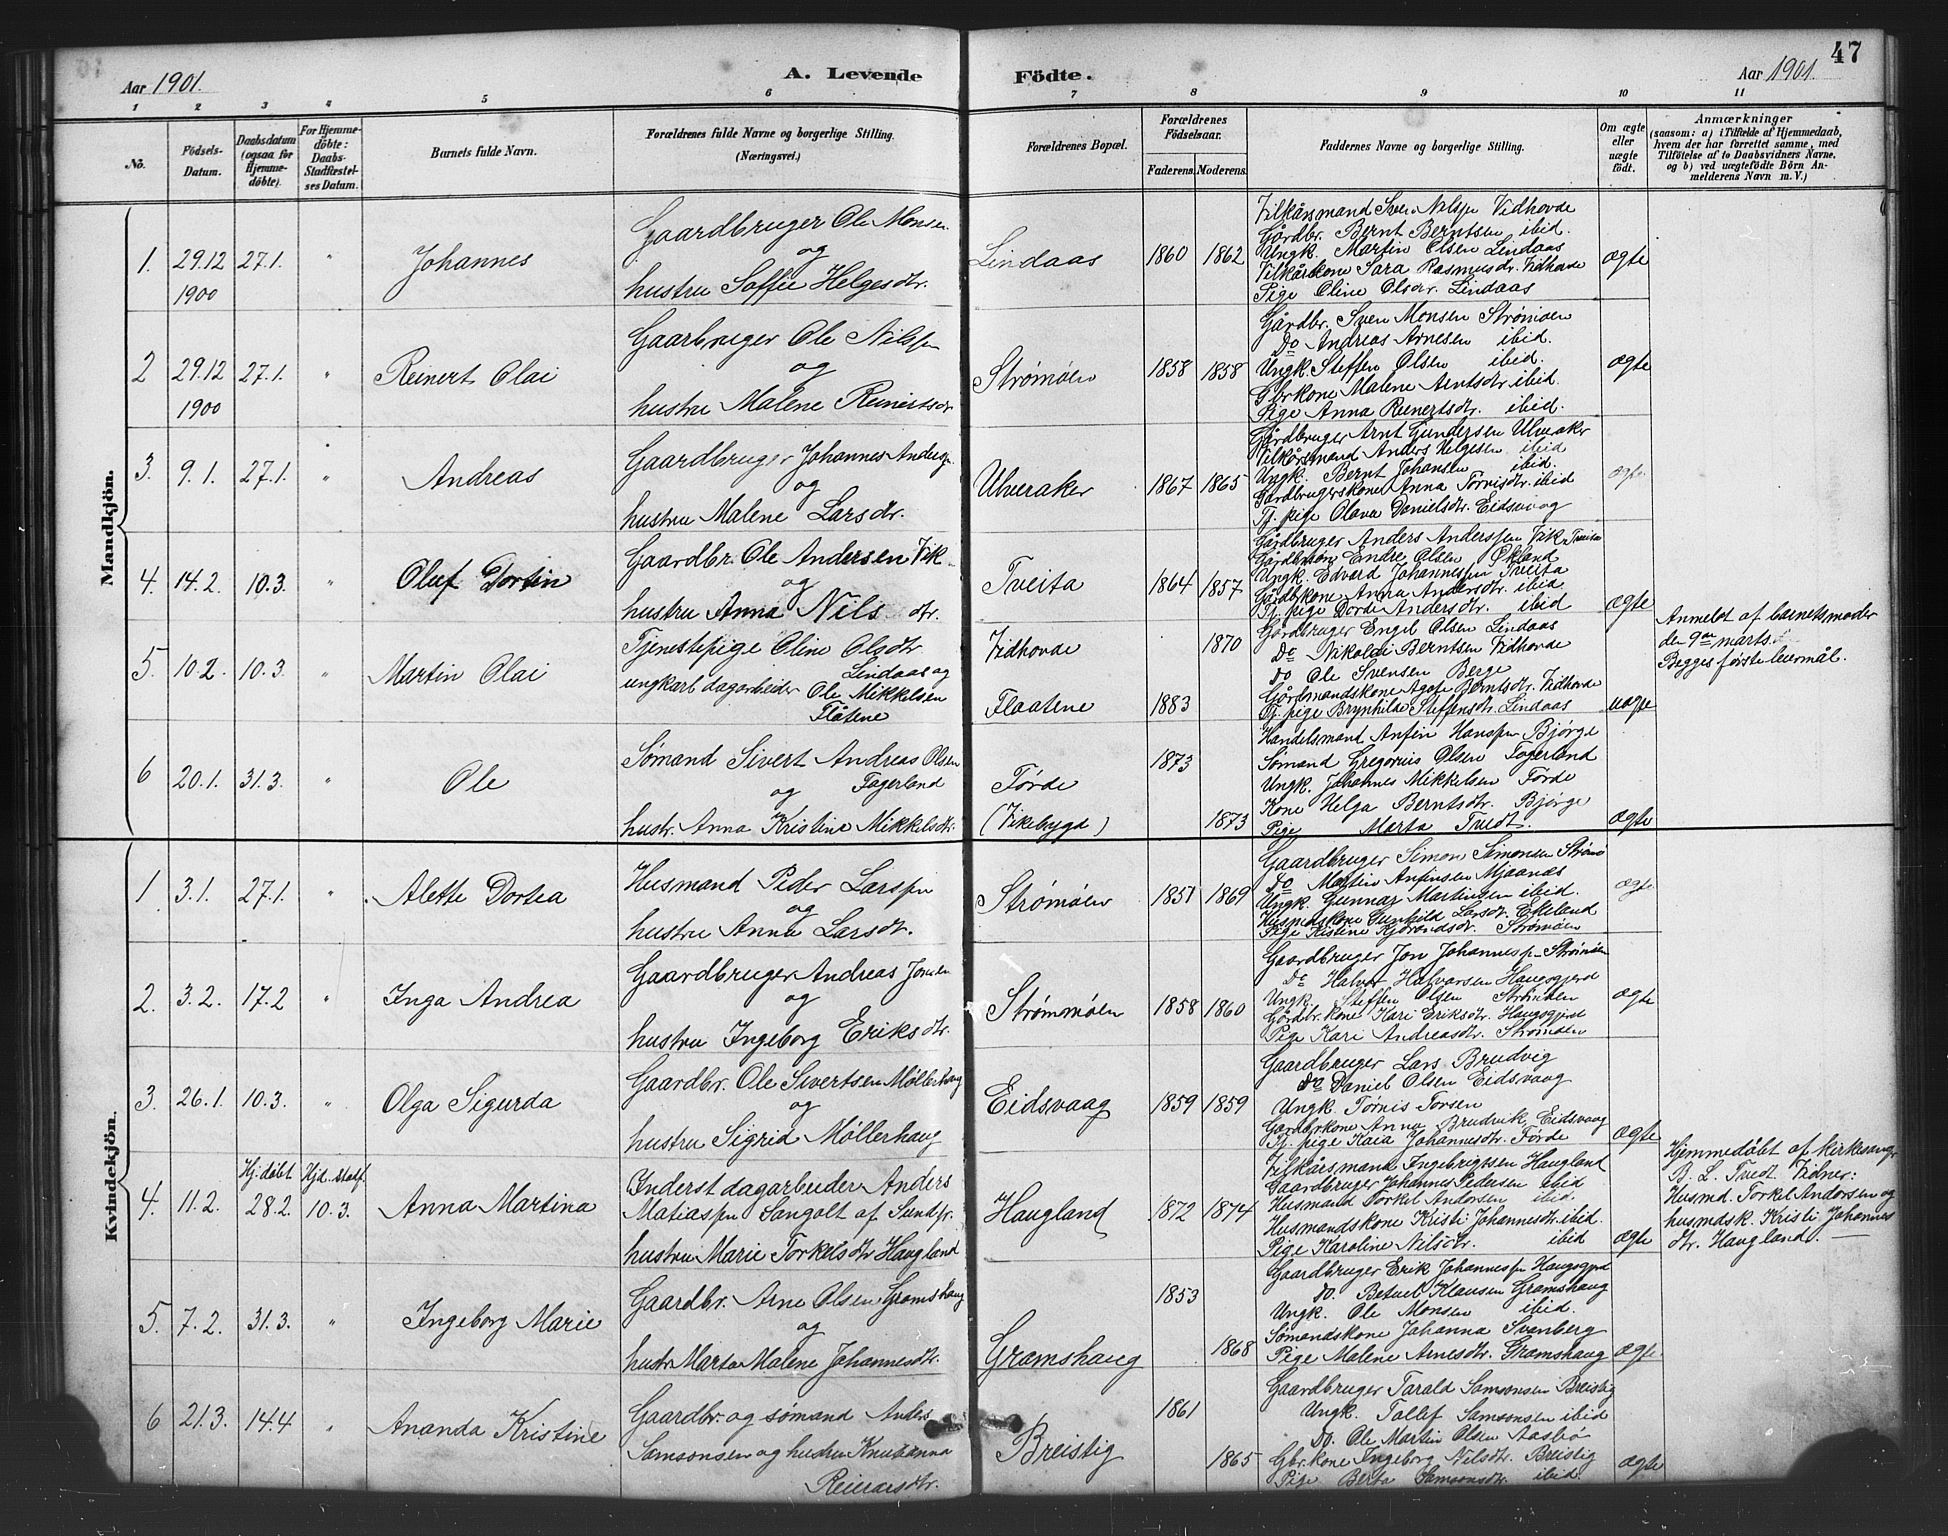 Aar 1901.
A. Levende Födte.
Aar 1901.
47
1 2 3 4 5 6 7 8 9 10 11
No.
Födsels-
Datum.
Daabsdatum
(ogsaa for
Hjemme-
döbte).
For Hjemme-
döbte:
Daabs-
Stadfæstel-
ses Datum.
Barnets fulde Navn.
Forældrenes fulde Navne og borgerlige Stilling.
(Næringsvei.)
Forældrenes Bopæl.
Forældrenes
Födselsaar.
Faderens. Moderens.
Faddernes Navne og borgerlige Stilling.
Om ægte
eller
uægte
födt.
Anmærkninger
(saasom: a) i Tilfælde af Hjemmedaab,
hvem der har forrettet samme, med
Tilföielse af to Daabsvidners Navne,
og b) ved uægtefödte Börn An-
melderens Navn m. V.)
Mandkjön.
1. 29.12 1900 27.1. " Johannes
Gaardbruger Ole Monsen
og
hustru Soffie Helgesdtr.
Lindaas 1860 1862
Vilkårsmand Sven Nilsen Vidhovde
Gårdbr. Bernt Berntsen ibid.
Ungk. Martin Olsen Lindaas
Vilkårskone Sara Rasmusdr. Vidhovde
Pige Oline Olsdr. Lindaas
ægte
2 29.12 1900 27.1. " Reinert Olai
Gaarbruger Ole Nilssen
og
hustru Malene Reinertsdr
Strømøen 1858 1858
Gårdbr. Sven Monsen Strømøen
Do Andreas Arnesen ibid.
Ungk. Steffen Olsen ibid.
Gbrkone Malene Arntsdtr ibid.
Pige Anna Reinertsdtr. ibid.
ægte
3. 9.1. 27.1. " Andreas
Gaardbruger Johannes Anders
og
hustru Malene Larsdtr.
Ulveraker 1867 1865
Gårdbruger Arnt Gundersen Ulveraker
Vilkårsmand Anders Helgesen ibid
Ungk. Bernt Johansen ibid.
Gardbrugerskone Anna Torrisdtr. ibid
Tj. pige Olava Danielsdtr. Eidsvaag
ægte
4. 14.2. 10.3. " Oluf Dortin
Gaardbr. Ole Andersen Vik
og
hustru Anna Nils dtr.
Tveita 1864 1857
Gårdbruger Anders Anderssen Vik Tveita
Endre Olsen Økland
Ungk. Edvard Johannessen Tveita
Gårdbrkone Anna Andersdtr. ibid
Tj. pige Dorde Andersdtr. ibid
ægte
5. 10.2. 10.3. " Martin Olai
Tjenestepige Oline Olsdtr.
Lindaas og
ungkarl dagarbeider Ole Mikkelsen
Flåtene
Vidhovde 1870
Flaatene 1883
Gårdbruger Engel Olsen Lindaas
Do Nikolai Berntsen Vidhovde
Do Ole Svensen Berge
Gårdmandskone Berntsdtr. Vidhovde
Tj. pige Brynhilde Steffensdtr. Lindaas
uægte
Anmeldt af barnets moder
den 9de marts.
Begges første leiermål.
6 20.1. 31.3. " Ole
Sømand Sivert Andreas Olsen
og Fagerland
hustr. Anna Kristine Mikkelsdtr.
Førde
(Vikebygd)
1873
1873
Handelsmand Anfin Hanssen Bjørge
Sømand Gregorius Olsen Fagerland
Ungk. Johannes Mikkelsen Førde
Kone Helga Berntsdtr. Bjørge
Pige Marta Tvedt.
ægte
Kvindekjön.
1. 3.1. 27.1. " Alette Dortea
Husmand Peder Larssen
og
hustru Anna Larsdtr.
Strømøen 1851 1869
Gaardbruger Simon Simonsen Strømø
Do Martin Anfinsen Mjaanæs
Ungk. Gunnar Martinsen ibid.
Husmdskone Gunhild Larsdtr. Ekeland
Pige Kistine Strømøen
ægte
2. 3.2. 17.2 " Inga Andrea
Gaardbruger Andreas Jonsen
og
hustru Ingeborg Eriksdtr.
Strømmøen 1858 1860
Gaardbruger Jon Johannessen Strømøen
Do Halvor Halvorsen Haugsgjerd
Ungk. Steffen Olsen Strømøen
Gårdbr. kone Kari Eriksdtr. Haugsgjerd
Pige Kari Andreasdtr. Strømøen
ægte
3. 26.1. 10.3. " Olga Sigurda
Gaardbr. Ole Sivertsen Møllerhaug
og
hustru Sigrid Møllerhaug
Eidsvaag 1859 1859
Gaardbruger Lars Brudvig
Do Daniel Olsen Eidsvaag
Ungk. Tørris Torsen
Gardbrkone Anna Brudvik Eidsvaag
Tj. pige Kaia Johannesdtr. Førde
ægte
4. 11.2. Hj.døbt 28.2. Hjd. stadf. 10.3. Anna Martina
Inderst dagarbeider Anders
Matiassen Sangolt af Sund
hustru Marie Torkelsdtr Haugland
Haugland 1872 1874
Vilkårsmand Ingebrigtsen Haugland
Gaardbruger Johannes Pedersen ibid
Husmand Torkel Andersen ibid.
Husmandskone Kristi Johannesdtr. ibid.
Pige Karoline Nilsdtr. ibid
ægte
Hjemmedøbt af kirkesanger
B. L. Tvedt. Vidner:
Husmd. Torkel Andersen og
husmdsk. Kristi Johannes
dtr. Haugland.
5. 7.2. 31.3. " Ingeborg Marie
Gaardbr. Arne Olsen Gramshaug
og
hustr Marta Malene Johannesdtr.
Gramshaug
1853
1868
Gaardbruger Erik Johannessen Haugsgjerd
Do. Betuel Klausen Gramshaug
Ungk. Ole Monsen ibid.
Sømandskone Johanna Svanberg
Pige Malene Arnesdtr. Gramshaug
ægte
6 21.3. 14.4 " Ananda Kristine
Gaardbr. og sømand Anders
Samsonsen og hustru Knutanna
Reinarsdtr.
Breistig
1861
1865
Gaardbruger Tarald Samsonsen Breistig
Ungk. Tollef Samsonsen ibid
Do. Ole Martin Olsen Aasbø
Gbr. kone Ingeborg Nilsdtr. Breistig
Pige Berta Samsonsdtr. ibid
ægte